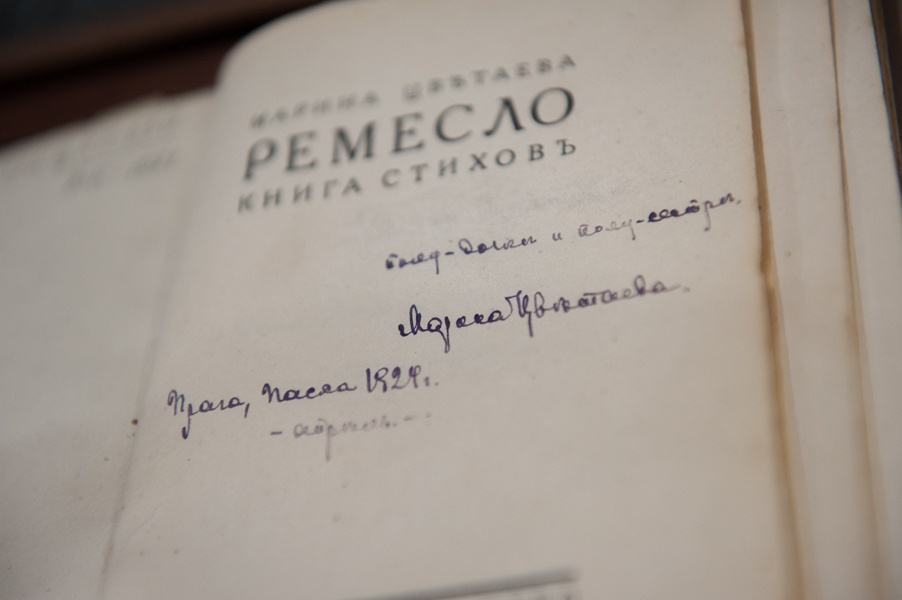 МАРИНА ЦВѢТАЕВА
РЕМЕСЛО
КНИГА СТИХОВЪ
полу-дочки и полу-сестры.
Марина Цвѣтаева.
Прага, Пасха 1924г.
- апрѣль. -